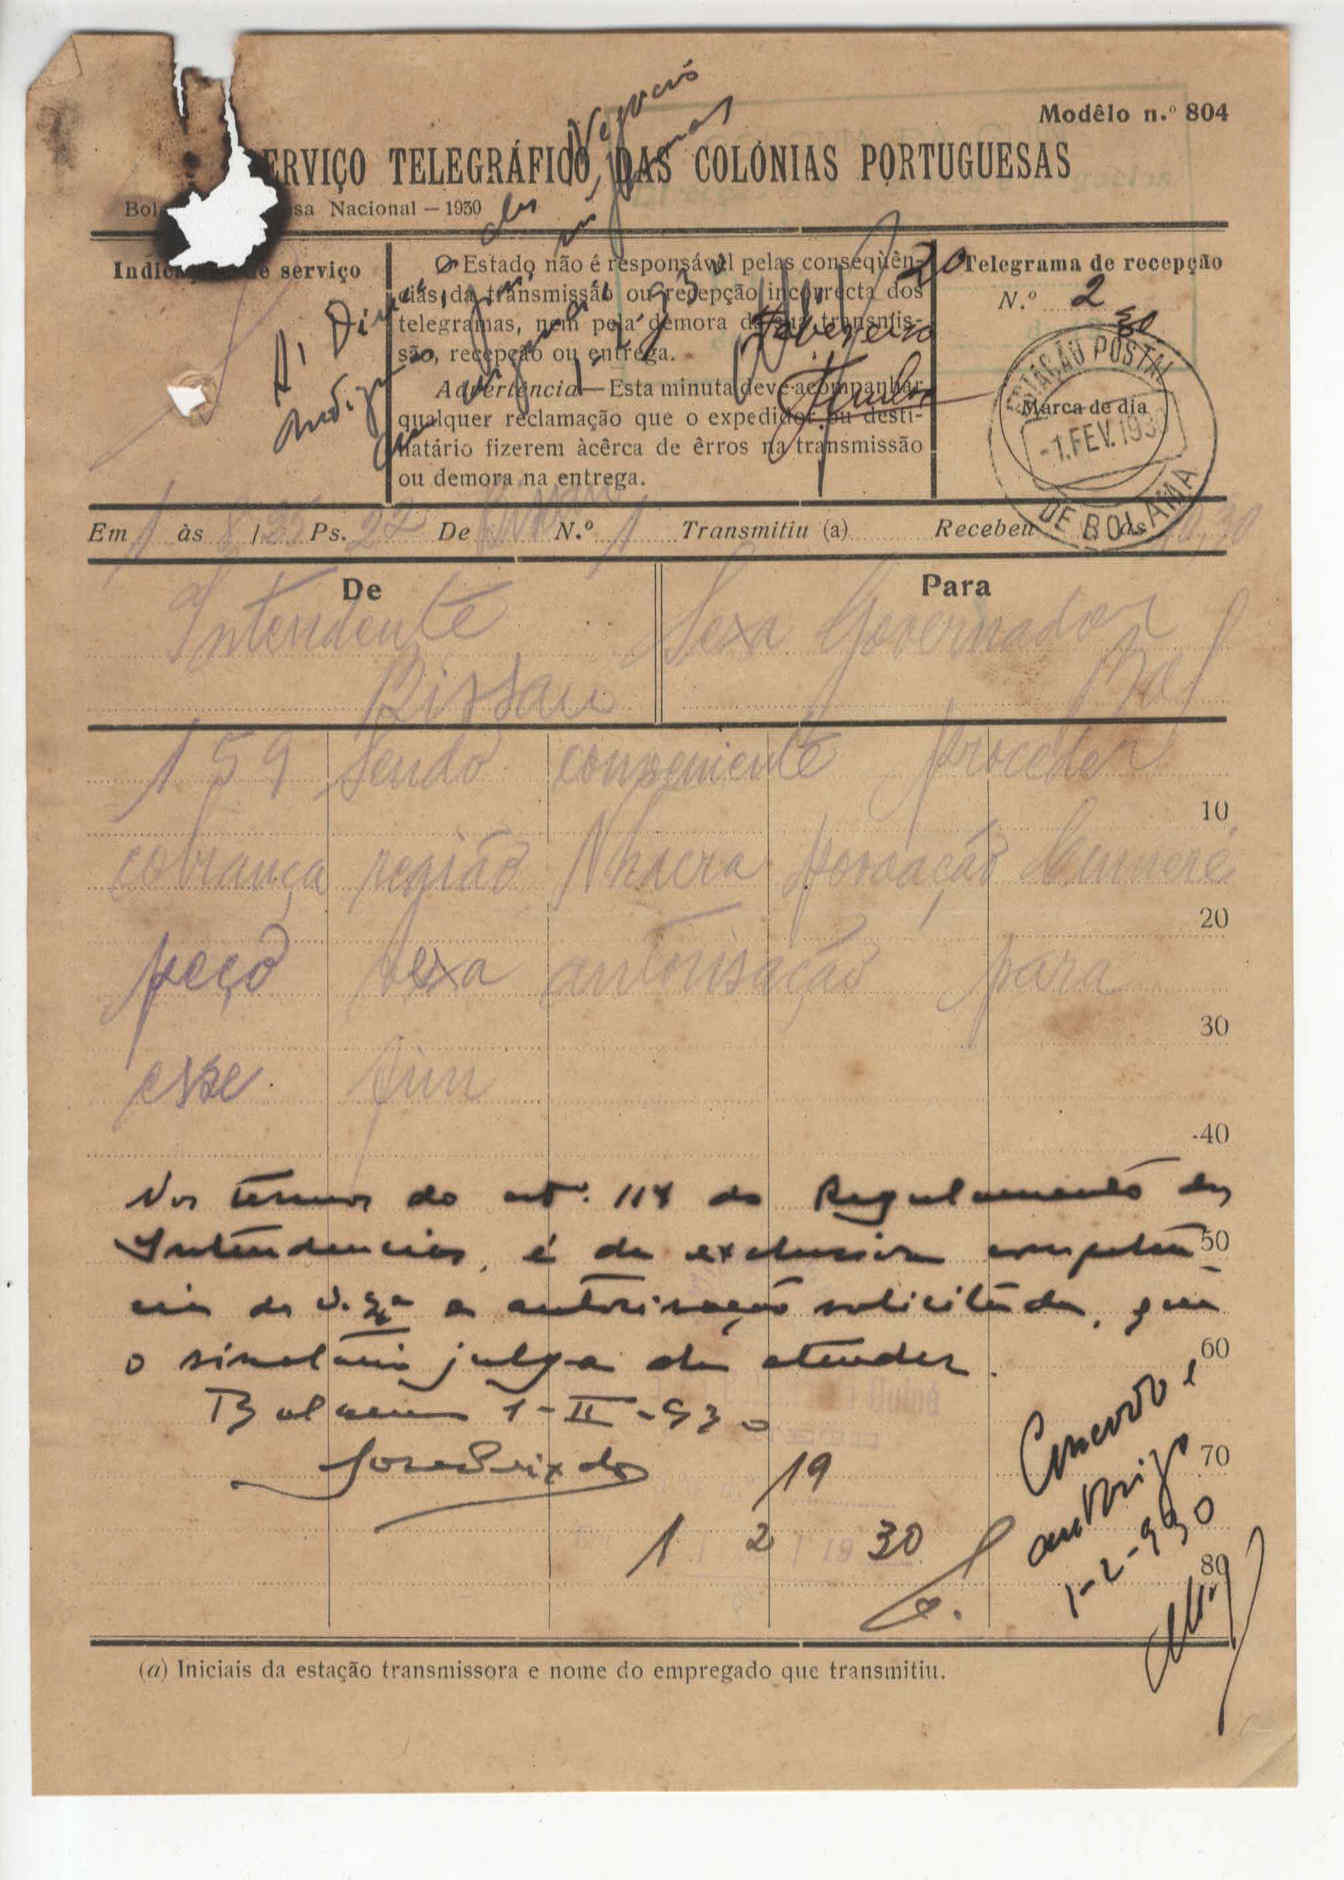 Modêlo n.º 804
SERVIÇO TELEGRÁFICO DAS COLÓNIAS PORTUGUESAS
Nacional — 1930
serviço
O Estado não é responsável pelas conseqüên-
cias da transmissão ou recepção incorrecta dos
telegramas, nem pela demora da sua transmis-
são, recepção ou entrega.
Advertência — Esta minuta deve acompanhar
qualquer reclamação que o expedidor ou desti-
natário fizerem àcêrca de êrros na transmissão
ou demora na entrega.
Á Direc
dos Negocios
indigenas
Fevereiro
20
Telegrama de recepção
N.º 2
30
ESTAÇÃO POSTAL
Marca de dia
-1. FEV. 193
DE BOLAMA
Em 1 às 8/25 Ps. 22 De Bissau N.º 1 Transmitiu (a) Recebeu às
De
Para
Intendente
Bissau
Sexa Governador
Bol
159 Sendo conveniente proceder
10
cobrança região Nhacra povoação Cumeré
20
peço Sexa autorisação para
30
esse fim
40
Nos termos do artº. 114 do Regulamento das
Intendencias, é da exclusiva competen
50
cia de V. Exª a autorisação solicitada, que
o sinatario julga de atender.
60
Bolama 1-II-930
70
19
1 2 30
80
Concordo e
autorizo
1-2-930
(a) Iniciais da estação transmissora e nome do empregado que transmitiu.